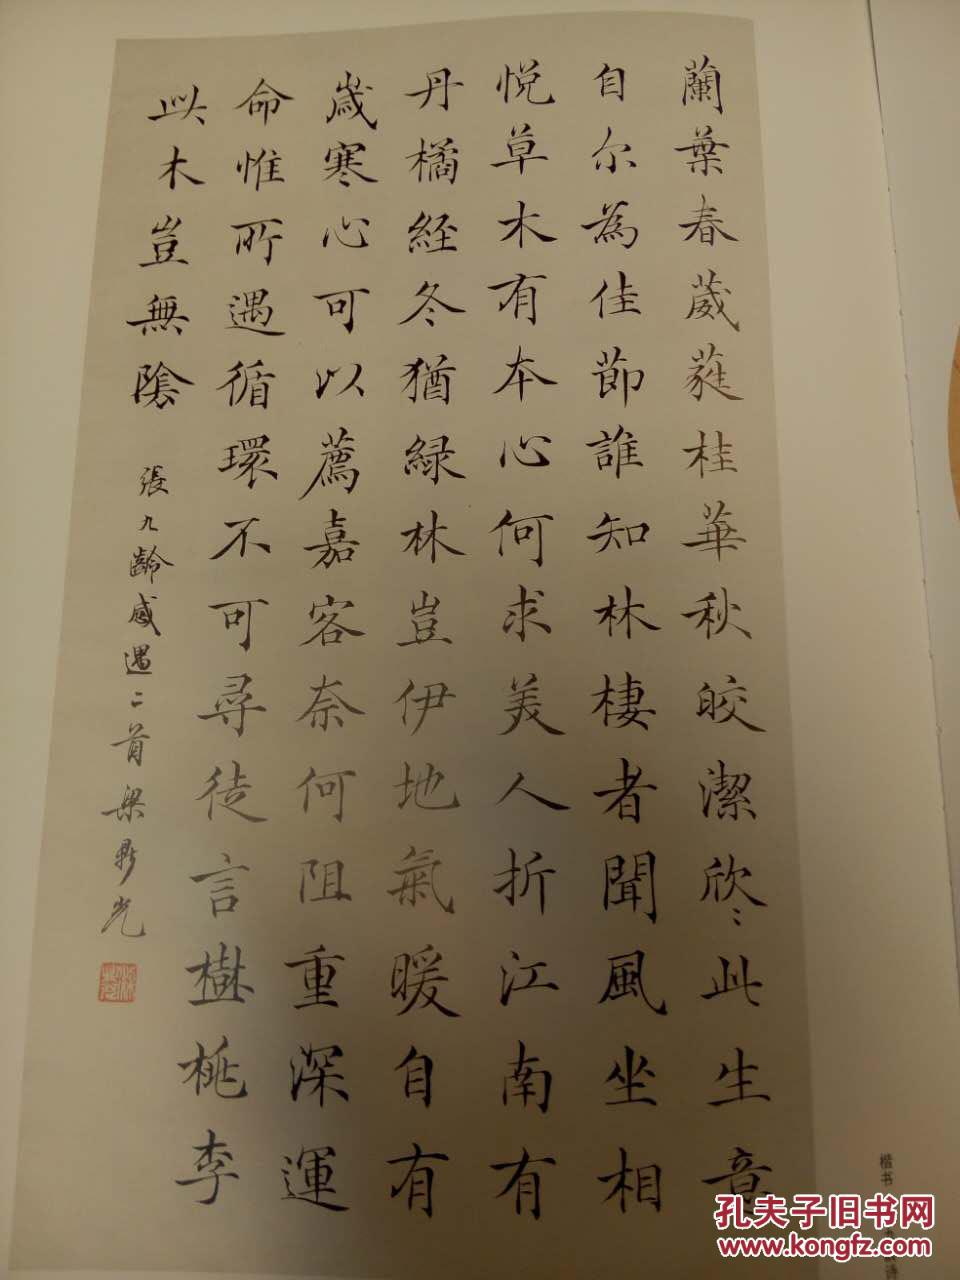 蘭葉春葳蕤桂華秋皎潔欣〻此生意
自尔為佳節誰知林棲者聞風坐相
悦草木有本心何求美人折江南有
丹橘経冬猶緑林豈伊地氣暖自有
歲寒心可以薦嘉客奈何阻重深運
命惟所遇循環不可尋徒言樹桃李
此木豈無陰
張九齡感遇二首 梁鼎光
楷书
孔夫子旧书网
www.kongfz.com